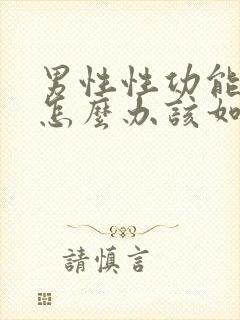 男性性功能
怎麼办該如
請慎言